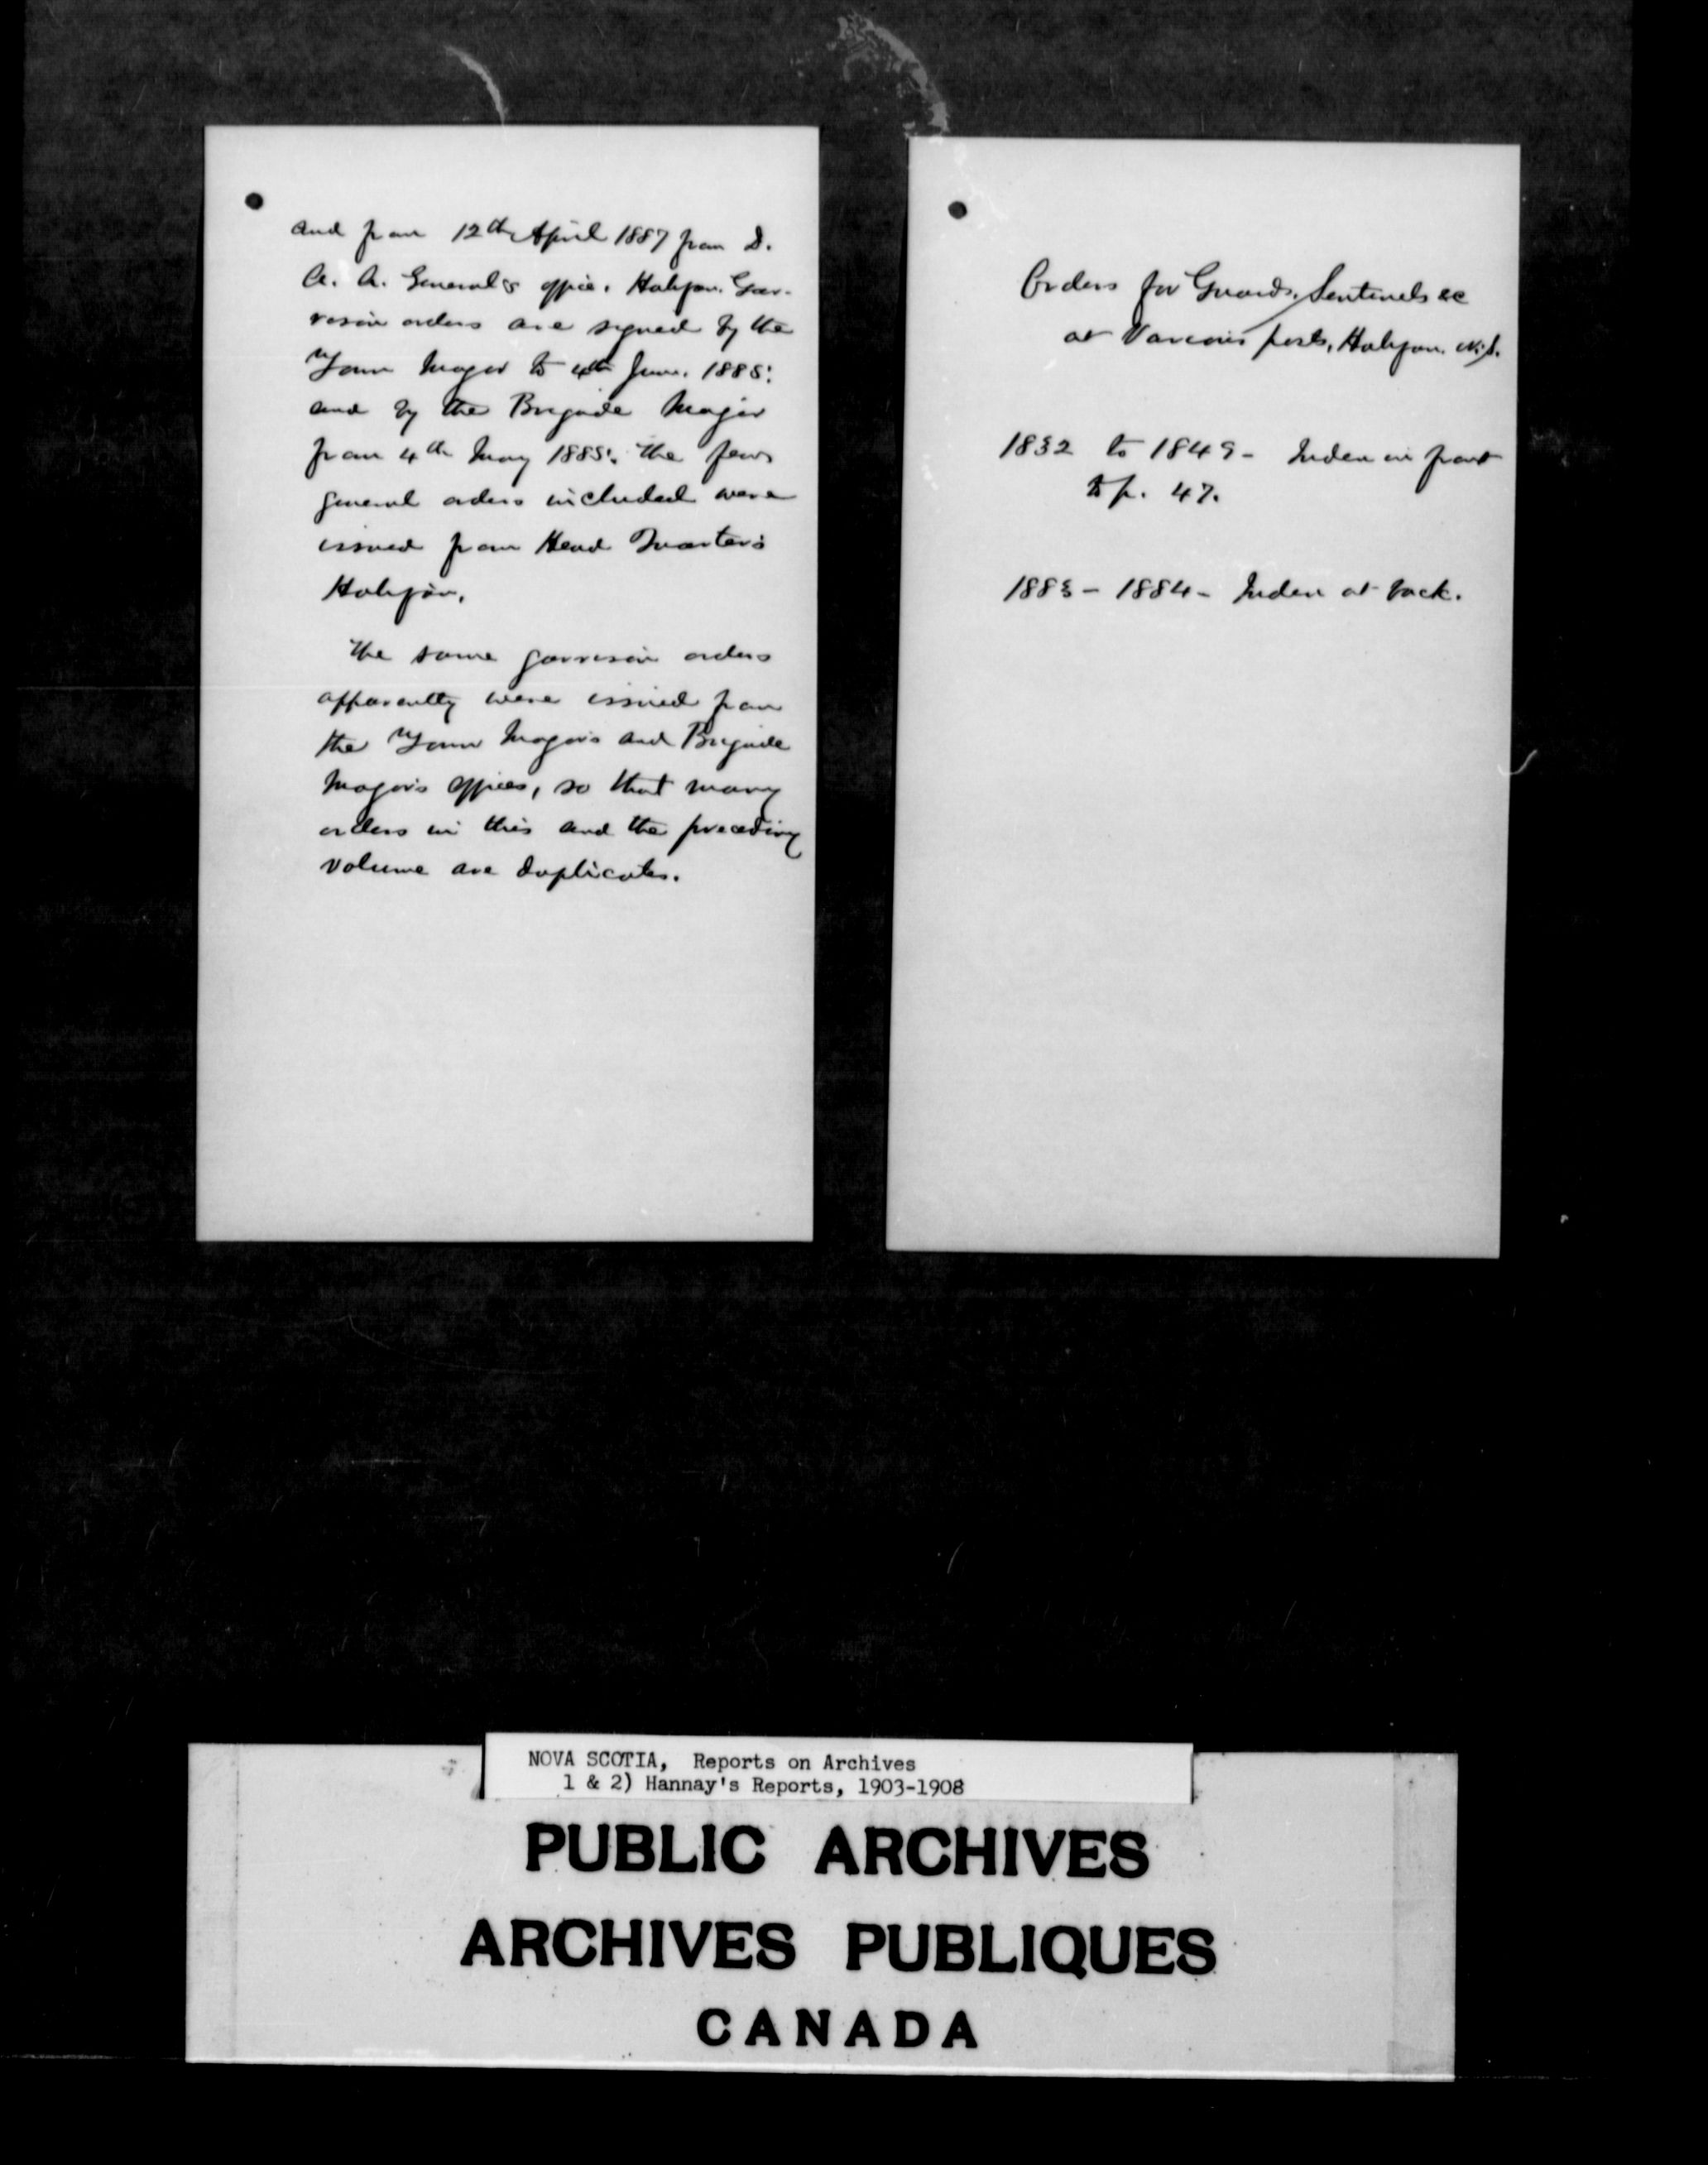 and from 12th April 1887 from D.
A. A. General's office, Halifax. Gar-
rison orders are signed by the
Town Major to 4th June. 1885:
and by the Brigade Major
from 4th May 1885: The few
general orders included were
issued from Head Quarters
Halifax.
The same garrison orders
apparently were issued from
the Town Major's and Brigade
Major's offices, so that many
orders in this and the preceding
volume are duplicates.
Orders for Guards, Sentinels &c
at Various posts, Halifax. N.S.
1832 to 1849 - Index in front
to p. 47.
1883 - 1884 - Index at back.
NOVA SCOTIA, Reports on Archives
1 & 2) Hannay's Reports, 1903-1908
PUBLIC ARCHIVES
ARCHIVES PUBLIQUES
CANADA